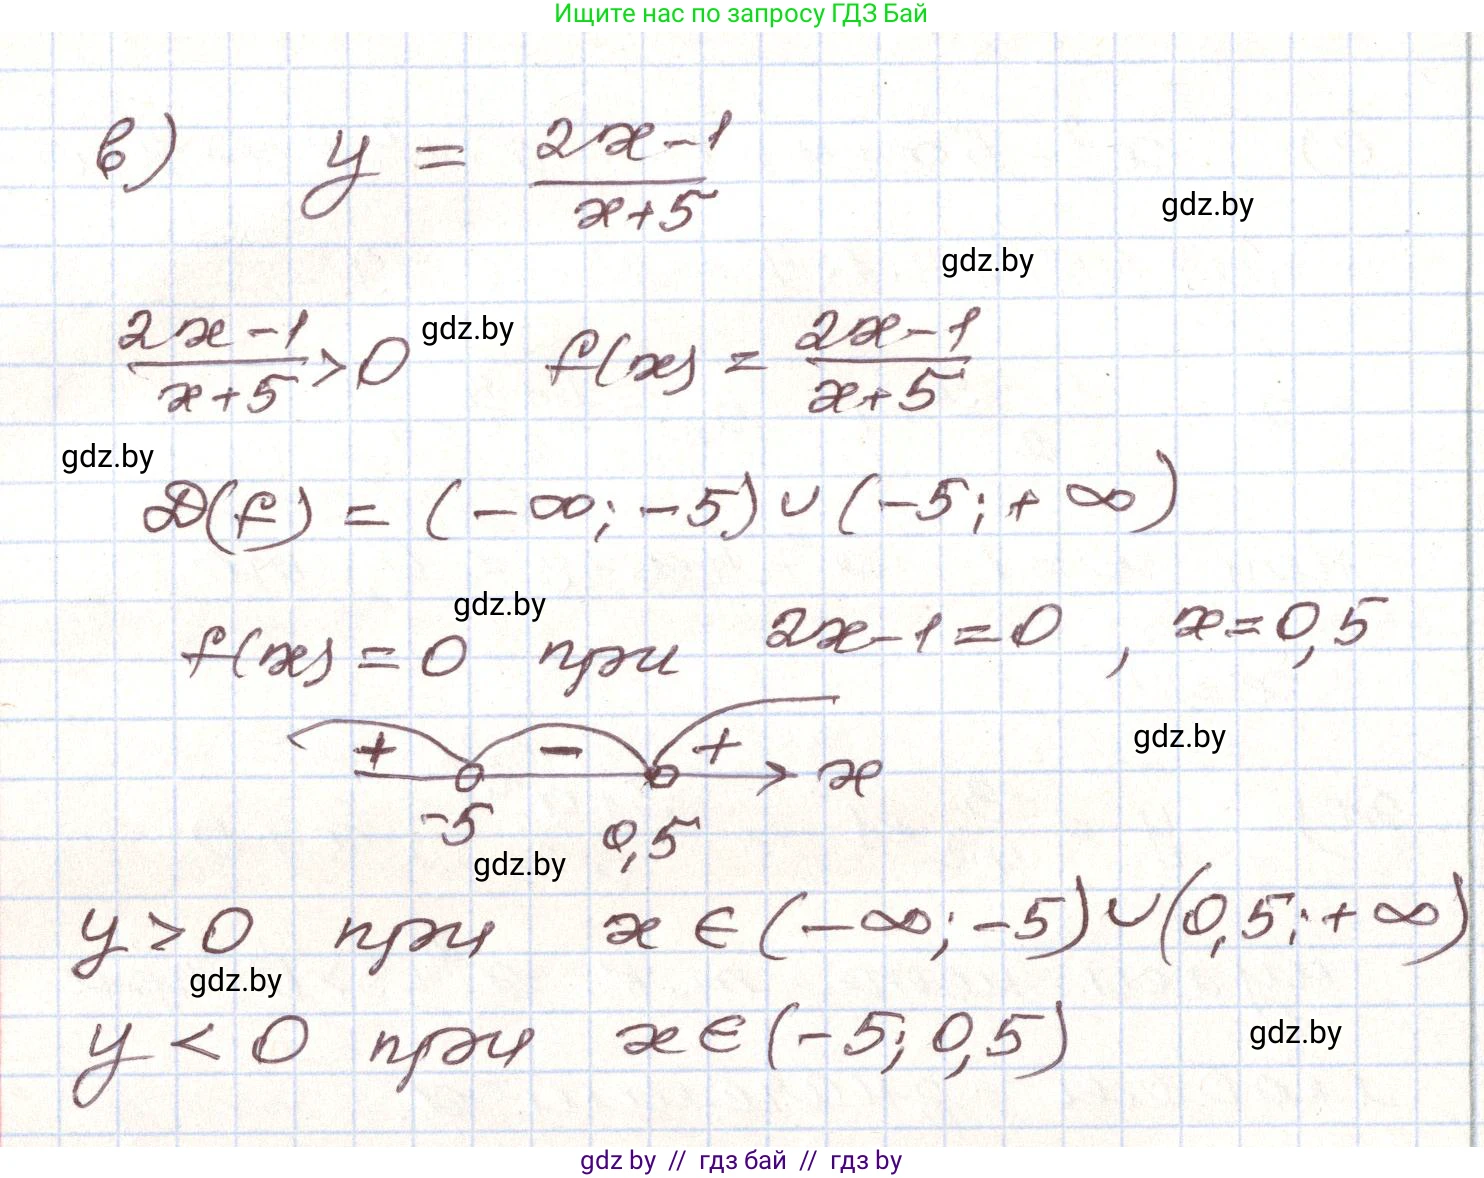 Ищите нас по запросу ГДЗ Бай
в) y = (2x-1)/(x+5)
gdz.by
gdz.by
(2x-1)/(x+5) > 0 gdz.by f(x) = (2x-1)/(x+5)
gdz.by
D(f) = (-∞; -5) ∪ (-5; +∞)
gdz.by
f(x) = 0 при 2x-1=0, x=0,5
+ - + x
gdz.by
-5 0,5
gdz.by
y > 0 при x ∈ (-∞; -5) ∪ (0,5; +∞)
gdz.by
y < 0 при x ∈ (-5; 0,5)
gdz.by
gdz by // гдз бай // гдз by